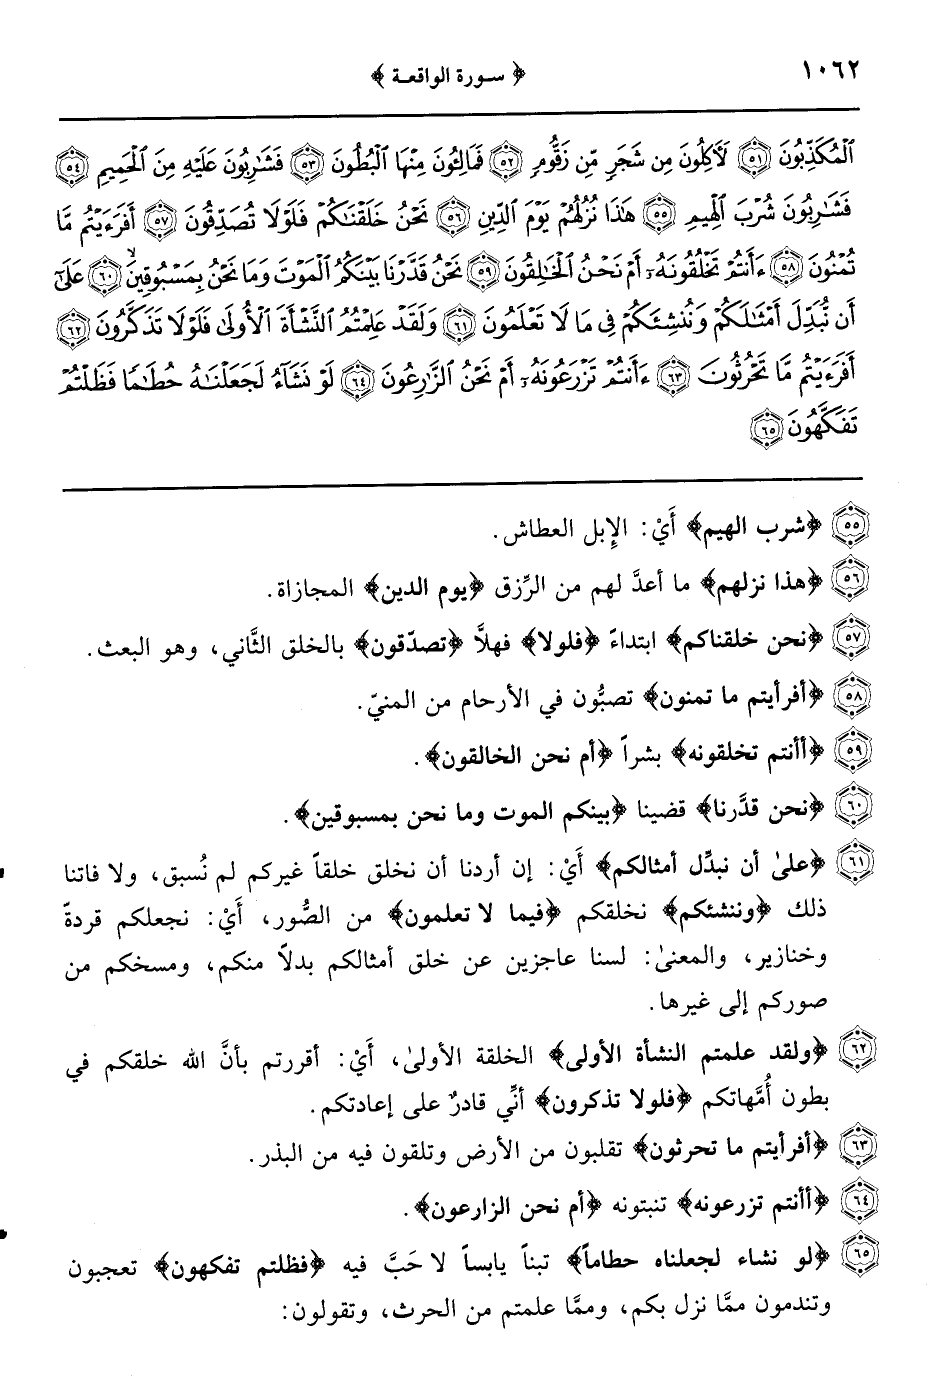 ١٠٦٢
﴿ سورة الواقعة ﴾
ٱلْمُكَذِّبُونَ ﴿٥١﴾ لَأَكِلُونَ مِن شَجَرٍ مِّن زَقُّومٍ ﴿٥٢﴾ فَمَالِـُٔونَ مِنْهَا ٱلْبُطُونَ ﴿٥٣﴾ فَشَٰرِبُونَ عَلَيْهِ مِنَ ٱلْحَمِيمِ ﴿٥٤﴾
فَشَٰرِبُونَ شُرْبَ ٱلْهِيمِ ﴿٥٥﴾ هَٰذَا نُزُلُهُمْ يَوْمَ ٱلدِّينِ ﴿٥٦﴾ نَحْنُ خَلَقْنَٰكُمْ فَلَوْلَا تُصَدِّقُونَ ﴿٥٧﴾ أَفَرَءَيْتُم مَّا
تُمْنُونَ ﴿٥٨﴾ ءَأَنتُمْ تَخْلُقُونَهُۥٓ أَمْ نَحْنُ ٱلْخَٰلِقُونَ ﴿٥٩﴾ نَحْنُ قَدَّرْنَا بَيْنَكُمُ ٱلْمَوْتَ وَمَا نَحْنُ بِمَسْبُوقِينَ ﴿٦٠﴾ عَلَىٰٓ
أَن نُّبَدِّلَ أَمْثَٰلَكُمْ وَنُنشِئَكُمْ فِى مَا لَا تَعْلَمُونَ ﴿٦١﴾ وَلَقَدْ عَلِمْتُمُ ٱلنَّشْأَةَ ٱلْأُولَىٰ فَلَوْلَا تَذَكَّرُونَ ﴿٦٢﴾
أَفَرَءَيْتُم مَّا تَحْرُثُونَ ﴿٦٣﴾ ءَأَنتُمْ تَزْرَعُونَهُۥٓ أَمْ نَحْنُ ٱلزَّٰرِعُونَ ﴿٦٤﴾ لَوْ نَشَآءُ لَجَعَلْنَٰهُ حُطَٰمًا فَظَلْتُمْ
تَفَكَّهُونَ ﴿٦٥﴾
﴿٥٥﴾ ﴿شرب الهيم﴾ أَيْ: الإِبل العطاش.
﴿٥٦﴾ ﴿هذا نزلهم﴾ ما أعدَّ لهم من الرِّزق ﴿يوم الدين﴾ المجازاة.
﴿٥٧﴾ ﴿نحن خلقناكم﴾ ابتداءً ﴿فلولا﴾ فهلَّا ﴿تصدّقون﴾ بالخلق الثَّاني، وهو البعث.
﴿٥٨﴾ ﴿أفرأيتم ما تمنون﴾ تصبُّون في الأرحام من المنيّ.
﴿٥٩﴾ ﴿أأنتم تخلقونه﴾ بشراً ﴿أم نحن الخالقون﴾.
﴿٦٠﴾ ﴿نحن قدَّرنا﴾ قضينا ﴿بينكم الموت وما نحن بمسبوقين﴾.
﴿٦١﴾ ﴿علىٰ أن نبدِّل أمثالكم﴾ أَيْ: إن أردنا أن نخلق خلقاً غيركم لم نُسبق، ولا فاتنا
ذلك ﴿وننشئكم﴾ نخلقكم ﴿فيما لا تعلمون﴾ من الصُّور، أَيْ: نجعلكم قردةً
وخنازير، والمعنىٰ: لسنا عاجزين عن خلق أمثالكم بدلاً منكم، ومسخكم من
صوركم إلى غيرها.
﴿٦٢﴾ ﴿ولقد علمتم النشأة الأولى﴾ الخلقة الأولىٰ، أَيْ: أقررتم بأنَّ الله خلقكم في
بطون أُمَّهاتكم ﴿فلولا تذكرون﴾ أنِّي قادرٌ على إعادتكم.
﴿٦٣﴾ ﴿أفرأيتم ما تحرثون﴾ تقلبون من الأرض وتلقون فيه من البذر.
﴿٦٤﴾ ﴿أأنتم تزرعونه﴾ تنبتونه ﴿أم نحن الزارعون﴾.
﴿٦٥﴾ ﴿لو نشاء لجعلناه حطاماً﴾ تبناً يابساً لا حَبَّ فيه ﴿فظلتم تفكهون﴾ تعجبون
وتندمون ممَّا نزل بكم، وممَّا علمتم من الحرث، وتقولون: